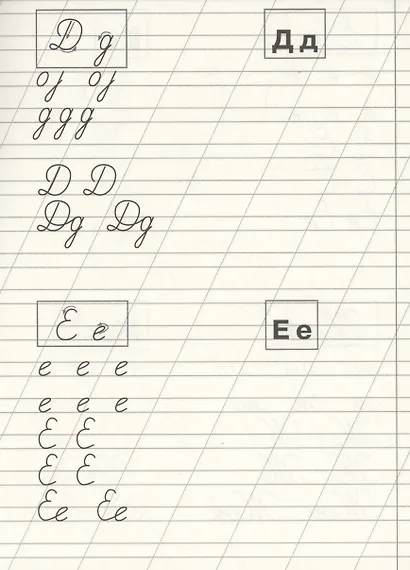 Д д Д д
д д д
Д Д
Дд Дд
Е е Е е
е е е
е е е
Е Е
Е Е
Ее Ее